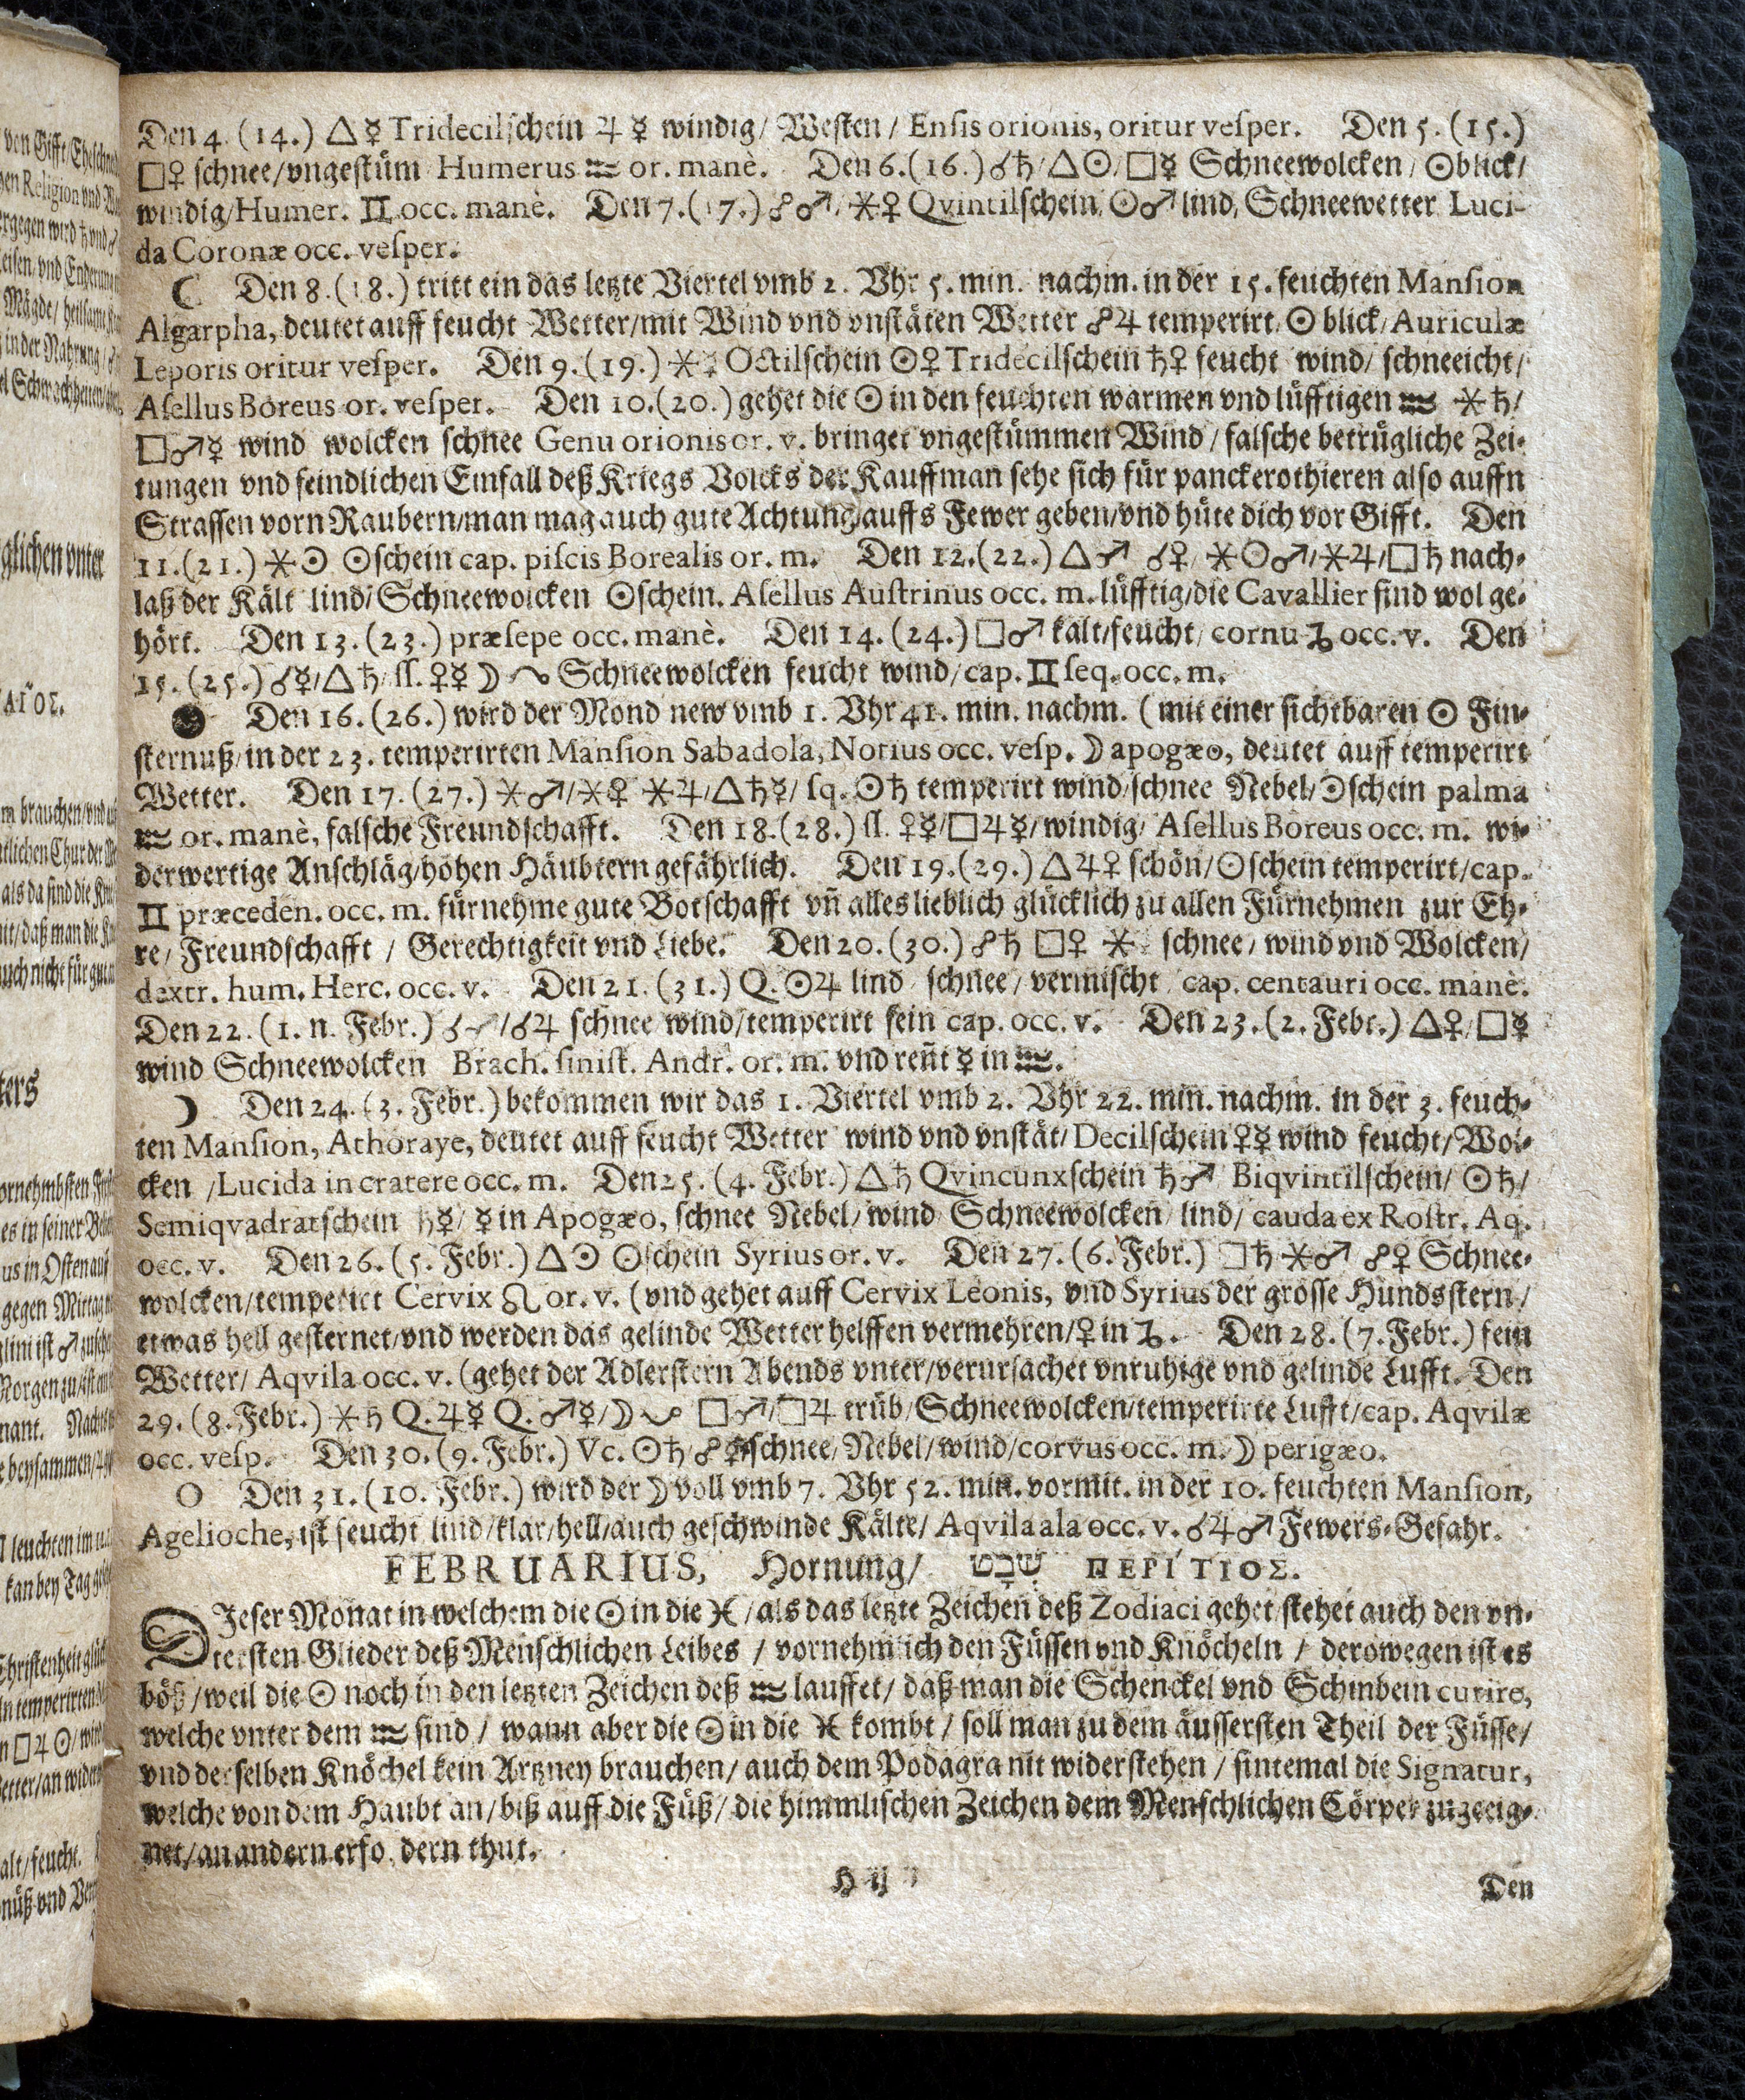 Den 4. (14.) △☿ Tridecilschein ♃☿ windig / Westen / Ensis orionis, oritur vesper. Den 5. (15.)
□♀ schnee / vngestüm Humerus ♒ or. manè. Den 6. (16.) ☌♄ / △☉ / □☿ Schneewolcken / ☉blick /
windig / Humer. ♊ occ. manè. Den 7. (17.) ☍♂ / ⚹♀ Qvintilschein ☉♂ lind, Schneewetter Luci-
da Coronæ occ. vesper.
☾ Den 8. (18.) tritt ein das letzte Viertel vmb 2. Vhr 5. min. nachm. in der 15. feuchten Mansion
Algarpha, deutet auff feucht Wetter / mit Wind vnd vnstäten Wetter ☍♃ temperirt / ☉ blick / Auriculæ
Leporis oritur vesper. Den 9. (19.) ⚹☿ Octilschein ☉♀ Tridecilschein ♄♀ feucht wind / schneeicht /
Asellus Boreus or. vesper. Den 10. (20.) gehet die ☉ in den feuchten warmen vnd lüfftigen ♒ ⚹♄ /
□♂☿ wind wolcken schnee Genu orionis or. v. bringet vngestümmen Wind / falsche betrügliche Zei-
tungen vnd feindlichen Einfall deß Kriegs Volcks der Kauffman sehe sich für panckerothieren also auffn
Strassen vorn Raubern / man mag auch gute Achtung auffs Fewer geben / vnd hüte dich vor Gifft. Den
11. (21.) ⚹☉ ☉schein cap. piscis Borealis or. m. Den 12. (22.) △♂ ☌♀ / ⚹☉♂ / ⚹♃ / □♄ nach-
laß der Kält lind / Schneewolcken ☉schein. Asellus Austrinus occ. m. lüfftig / die Cavallier sind wol ge-
hört. Den 13. (23.) præsepe occ. manè. Den 14. (24.) □♂ kalt / feucht / cornu ♑ occ. v. Den
15. (25.) ☌☿ / △♄ / ſſ. ♀☿☽ Schneewolcken feucht wind / cap. ♊ seq. occ. m.
● Den 16. (26.) wird der Mond new vmb 1. Vhr 41. min. nachm. (mit einer sichtbaren ☉ Fin-
sternuß / in der 23. temperirten Mansion Sabadola, Notius occ. vesp. ☽ apogæo, deutet auff temperirt
Wetter. Den 17. (27.) ⚹♂ / ⚹♀ ⚹♃ / △♄☿ / sq. ☉♄ temperirt wind / schnee Nebel / ☉schein palma
♒ or. manè, falsche Freundschafft. Den 18. (28.) ſſ. ♀☿ / □♃☿ / windig / Asellus Boreus occ. m. wi-
derwertige Anschläg / hohen Häubtern gefährlich. Den 19. (29.) △♃♀ schön / ☉schein temperirt / cap.
♊ præceden. occ. m. fürnehme gute Botschafft vñ alles lieblich glücklich zu allen Fürnehmen zur Eh-
re / Freundschafft / Gerechtigkeit vnd Liebe. Den 20. (30.) ☍♄ □♀ ⚹ schnee / wind vnd Wolcken /
dextr. hum. Herc. occ. v. Den 21. (31.) Q. ☉♃ lind schnee / vermischt cap. centauri occ. manè.
Den 22. (1. n. Febr.) ☌ / ☌♃ schnee wind / temperirt fein cap. occ. v. Den 23. (2. Febr.) △♀ / □☿
wind Schneewolcken Brach. sinist. Andr. or. m. vnd reñt ☿ in ♒.
☽ Den 24. (3. Febr.) bekommen wir das 1. Viertel vmb 2. Vhr 22. min. nachm. in der 3. feuch-
ten Mansion, Athoraye, deutet auff feucht Wetter wind vnd vnstät / Decilschein ♀☿ wind feucht / Wol-
cken / Lucida in cratere occ. m. Den 25. (4. Febr.) △♄ Qvincunxschein ♄♂ Biqvintilschein / ☉♄ /
Semiqvadratschein ♄☿ / ☿ in Apogæo, schnee Nebel / wind Schneewolcken lind / cauda ex Rostr. Aq.
occ. v. Den 26. (5. Febr.) △☉ ☉schein Syrius or. v. Den 27. (6. Febr.) □♄ ⚹♂ ☍♀ Schnee-
wolcken / temperirt Cervix ♌ or. v. (vnd gehet auff Cervix Leonis, vnd Syrius der grosse Hundsstern /
etwas hell gesternet / vnd werden das gelinde Wetter helffen vermehren / ♀ in ♑. Den 28. (7. Febr.) fein
Wetter / Aqvila occ. v. (gehet der Adlerstern Abends vnter / verursachet vnruhige vnd gelinde Lufft. Den
29. (8. Febr.) ⚹♄ Q. ♃☿ Q. ♂☿ / ☽ □♂ / □♃ trüb / Schneewolcken / temperirte Lufft / cap. Aqvilæ
occ. vesp. Den 30. (9. Febr.) Vc. ☉♄ / ☍☿ schnee / Nebel / wind / corvus occ. m. ☽ perigæo.
○ Den 31. (10. Febr.) wird der ☽ voll vmb 7. Vhr 52. min. vormit. in der 10. feuchten Mansion,
Agelioche, ist feucht lind / klar / hell / auch geschwinde Kälte / Aqvila ala occ. v. ☌♃♂ Fewers-Gefahr.
FEBRUARIUS, Hornung / שבט ΠΕΡΊΤΙΟΣ.
DIeser Monat in welchem die ☉ in die ♓ / als das letzte Zeichen deß Zodiaci gehet / stehet auch den vn-
tersten Glieder deß Menschlichen Leibes / vornehmlich den Füssen vnd Knöcheln / derowegen ist es
böß / weil die ☉ noch in den letzten Zeichen deß ♒ lauffet / daß man die Schenckel vnd Schinbein curire,
welche vnter dem ♒ sind / wann aber die ☉ in die ♓ kombt / soll man zu dem äussersten Theil der Füsse /
vnd derselben Knöchel kein Artzney brauchen / auch dem Podagra nit widerstehen / sintemal die Signatur,
welche von dem Haubt an / biß auff die Füß / die himmlischen Zeichen dem Menschlichen Cörper zugeeig-
net / an andern erfo dern thut.
H ij Den